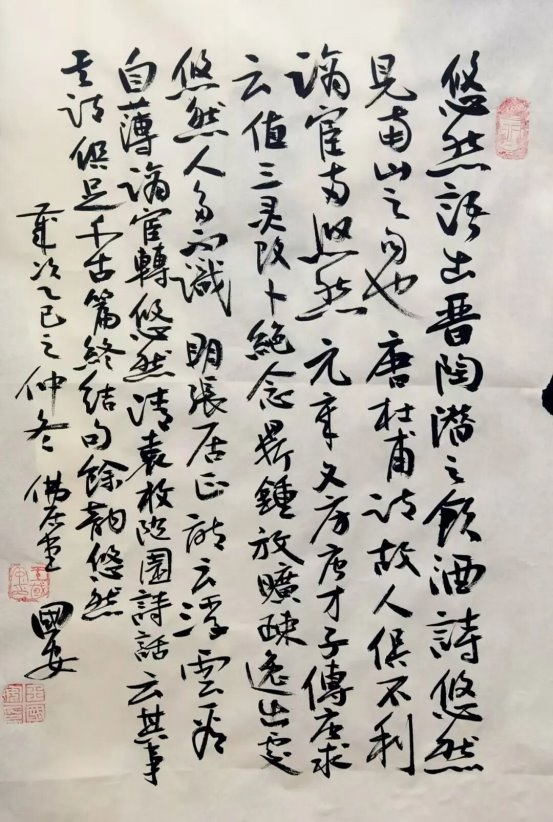 悠然語出晋陶潜之飲酒詩悠然
見南山之句也 唐杜甫诗故人俱不利
謫宦两悠然 元辛文房唐才子傳唐求
云值三灵改卜絶念鼎鍾放曠疎逸出處
悠然人多不識 明張居正詩云浮雲看
自薄謫宦轉悠然清袁枚随園詩話云其事
其诗俱足千古篇終结句餘韵悠然
歲次乙巳之仲冬 國安